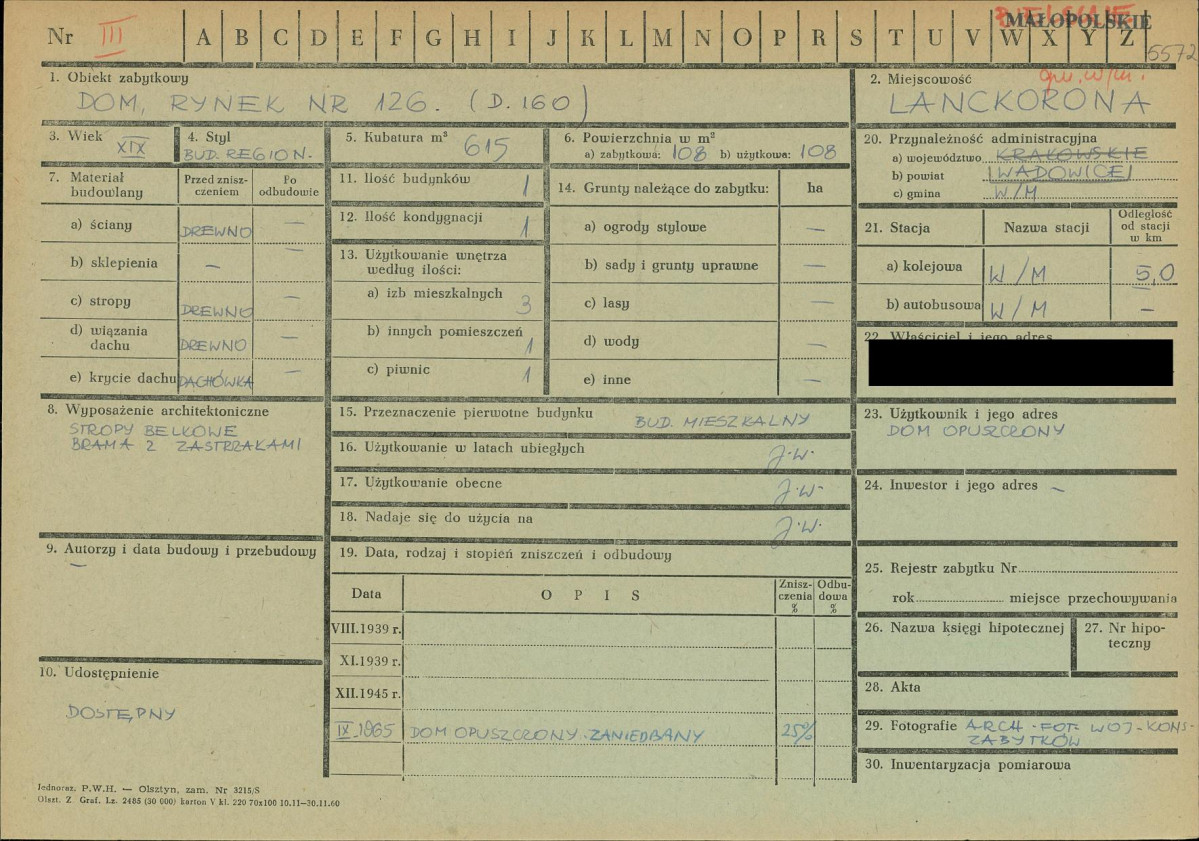 Nr III A B C D E F G H I J K L M N O P R S T U V W X Y Z
BIELSKIE
MAŁOPOLSKIE
5572
1. Obiekt zabytkowy
DOM, RYNEK NR 126. (D. 160)
2. Miejscowość
gm. w/m.
LANCKORONA
3. Wiek
XIX
4. Styl
BUD. REGION.
5. Kubatura m³ 615
6. Powierzchnia w m²
a) zabytkowa: 108 b) użytkowa: 108
20. Przynależność administracyjna
a) województwo KRAKOWSKIE
b) powiat WADOWICE
c) gmina W/M
7. Materiał budowlany
Przed zniszczeniem
Po odbudowie
a) ściany DREWNO —
b) sklepienia — —
c) stropy DREWNO —
d) wiązania dachu DREWNO —
e) krycie dachu DACHÓWKA —
11. Ilość budynków 1
12. Ilość kondygnacji 1
13. Użytkowanie wnętrza
według ilości:
a) izb mieszkalnych 3
b) innych pomieszczeń 1
c) piwnic 1
14. Grunty należące do zabytku: ha
a) ogrody stylowe —
b) sady i grunty uprawne —
c) lasy —
d) wody —
e) inne —
21. Stacja Nazwa stacji Odległość od stacji w km
a) kolejowa W/M 5,0
b) autobusowa W/M —
22. Właściciel i jego adres
8. Wyposażenie architektoniczne
STROPY BELKOWE
BRAMA Z ZASTRZAŁAMI
15. Przeznaczenie pierwotne budynku BUD. MIESZKALNY
16. Użytkowanie w latach ubiegłych J.W.
17. Użytkowanie obecne J.W.
18. Nadaje się do użycia na J.W.
23. Użytkownik i jego adres
DOM OPUSZCZONY
24. Inwestor i jego adres —
9. Autorzy i data budowy i przebudowy
—
19. Data, rodzaj i stopień zniszczeń i odbudowy
Data OPIS Zniszczenia % Odbudowa %
VIII.1939 r.
XI.1939 r.
XII.1945 r.
IX.1965 DOM OPUSZCZONY ZANIEDBANY 25%
10. Udostępnienie
DOSTĘPNY
25. Rejestr zabytku Nr
rok miejsce przechowywania
26. Nazwa księgi hipotecznej
27. Nr hipoteczny
28. Akta
29. Fotografie ARCH-FOT-WOJ-KONS-
ZABYTKÓW
30. Inwentaryzacja pomiarowa
Jednoraz. P.W.H. — Olsztyn, zam. Nr 3215/S
Olszt. Z. Graf. Lz. 2485 (30 000) karton V kl. 220 70x100 10.11—30.11.60